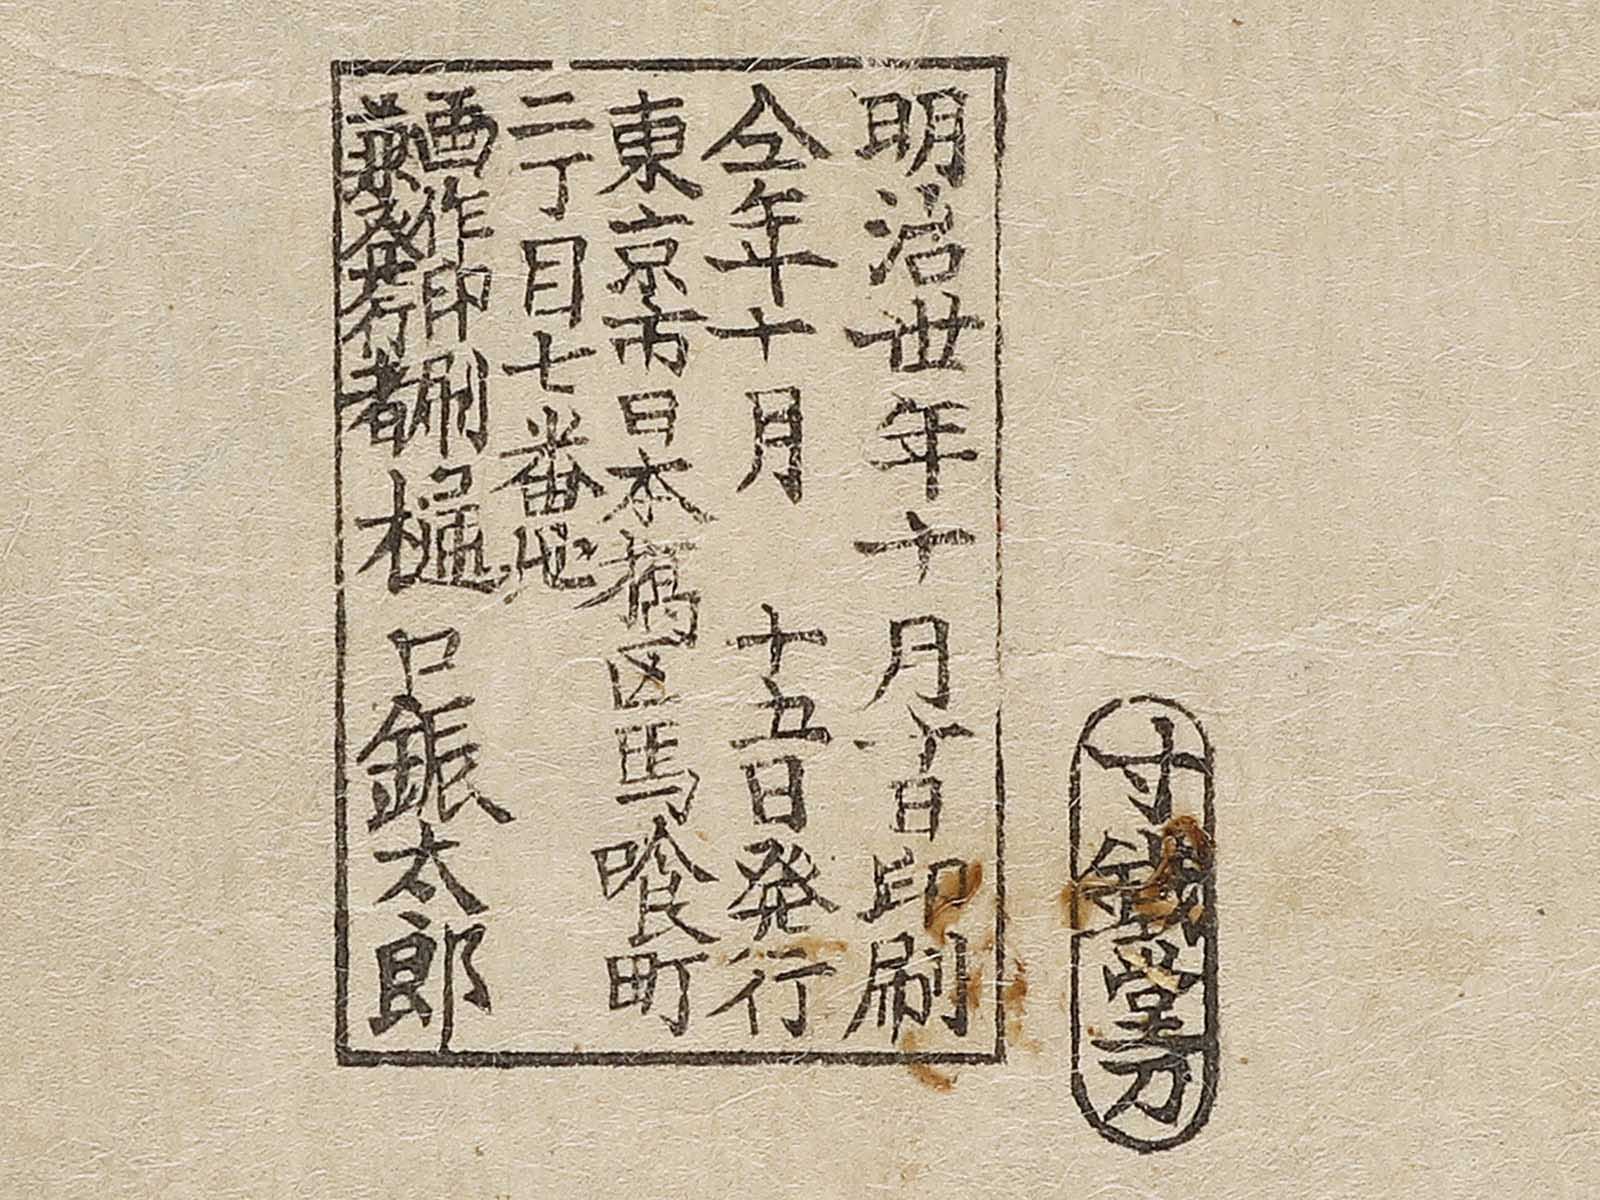 寸銭堂刀
明治丗年十月十日印刷
仝年十月 十五日発行
東京市日本橋区馬喰町
二丁目七番地
画作印刷
兼発行者
樋口銀太郎